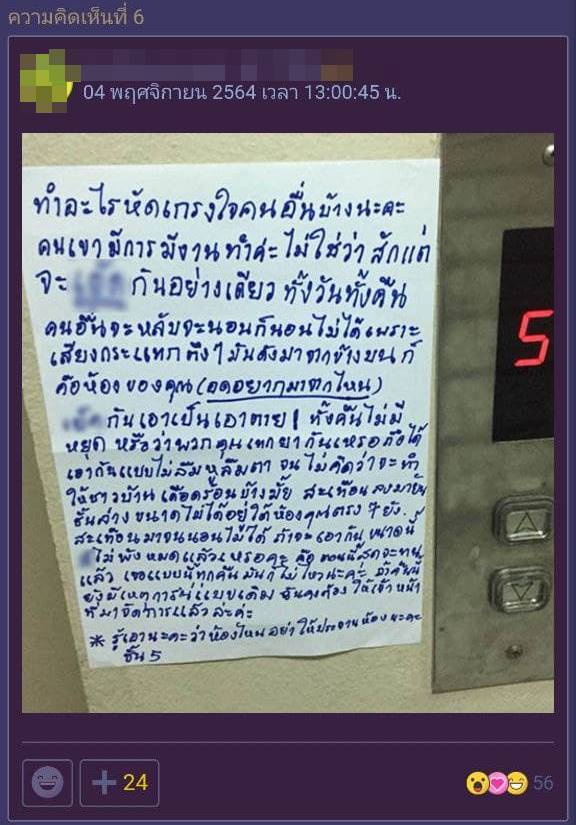 ความคิดเห็นที่ 6
04 พฤศจิกายน 2564 เวลา 13:00:45 น.
ทำอะไรหัดเกรงใจคนอื่นบ้างนะคะ
คนเขามีการมีงานทำค่ะ ไม่ใช่ว่า สักแต่
จะ กันอย่างเดียว ทั้งวันทั้งคืน
คนอื่นจะหลับจะนอนก็นอนไม่ได้เพราะ
เสียงกระแทกตึงๆ มันดังมาจากข้างบน ก็
คือห้องของคุณ (อดอยากมาจากไหน)
กันเอาเป็นเอาตาย! ทั้งคืนไม่มี
หยุด หรือว่าพวกคุณเสพยากันเหรอ ถึงได้
เอากันแบบไม่ลืมหูลืมตา จนไม่คิดว่าจะทำ
ให้ชาวบ้านเดือดร้อนบ้างมั้ย สะเทือนลงมายัน
ชั้นล่าง ขนาดไม่ได้อยู่ใต้ห้องคุณตรงๆ ยัง
สะเทือนมาจนนอนไม่ได้ ถ้าจะเอากันขนาดนี้
ไม่พังหมดแล้วเหรอคะ คือตอนนี้สุดจะทน
แล้ว เจอแบบนี้ทุกคืนมันก็ไม่ไหวนะคะ ถ้าคืนนี้
ยังมีเหตุการณ์แบบเดิม ฉันคงต้องให้เจ้าหน้า
ที่มาจัดการแล้วล่ะค่ะ
* รู้เอานะคะว่าห้องไหน อย่าให้ประจานห้องนะคะ
ชั้น 5
5
+ 24
56